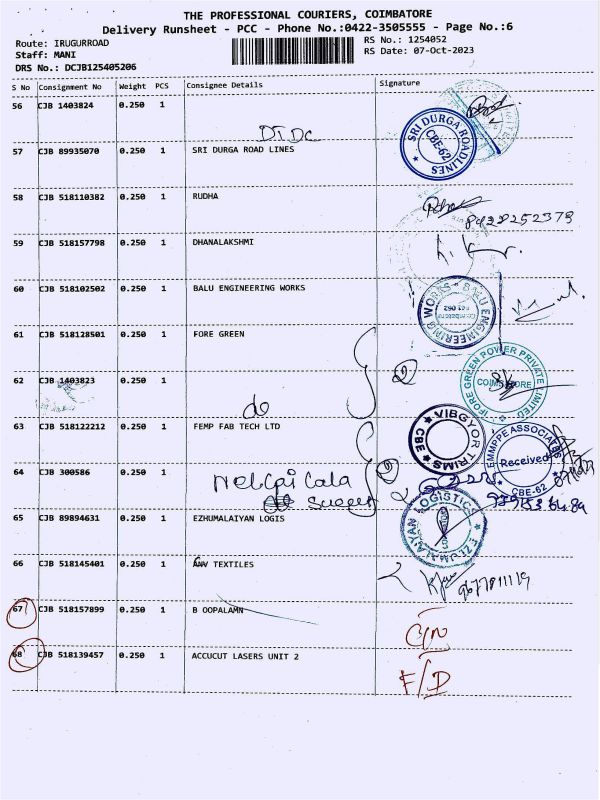 THE PROFESSIONAL COURIERS, COIMBATORE
Delivery Runsheet - PCC - Phone No.:0422-3505555 - Page No.:6
Route: IRUGURROAD
RS No.: 1254052
Staff: MANI
RS Date: 07-Oct-2023
DRS No.: DCJB125405206
S No Consignment No Weight PCS Consignee Details Signature
56 CJB 1403824 0.250 1
DTDC
57 CJB 89935070 0.250 1 SRI DURGA ROAD LINES
SRI DURGA ROADLINES
CBE-62
58 CJB 518110382 0.250 1 RUDHA
8922252379
59 CJB 518157798 0.250 1 DHANALAKSHMI
60 CJB 518102502 0.250 1 BALU ENGINEERING WORKS
BALU ENGINEERING WORKS
61 CJB 518128501 0.250 1 FORE GREEN
FORE GREEN POWER PRIVATE LIMITED
62 CJB 1403823 0.250 1
do
63 CJB 518122212 0.250 1 FEMP FAB TECH LTD
VIBGYOR TRIMS
CBE
EMMPPE ASSOCIATES
Received
CBE-62
64 CJB 300586 0.250 1
65 CJB 89894631 0.250 1 EZHUMALAIYAN LOGIS
EZHUMALAIYAN LOGISTICS
66 CJB 518145401 0.250 1 ANV TEXTILES
9677811119
67 CJB 518157899 0.250 1 B OOPALAMN
68 CJB 518139457 0.250 1 ACCUCUT LASERS UNIT 2
F/D